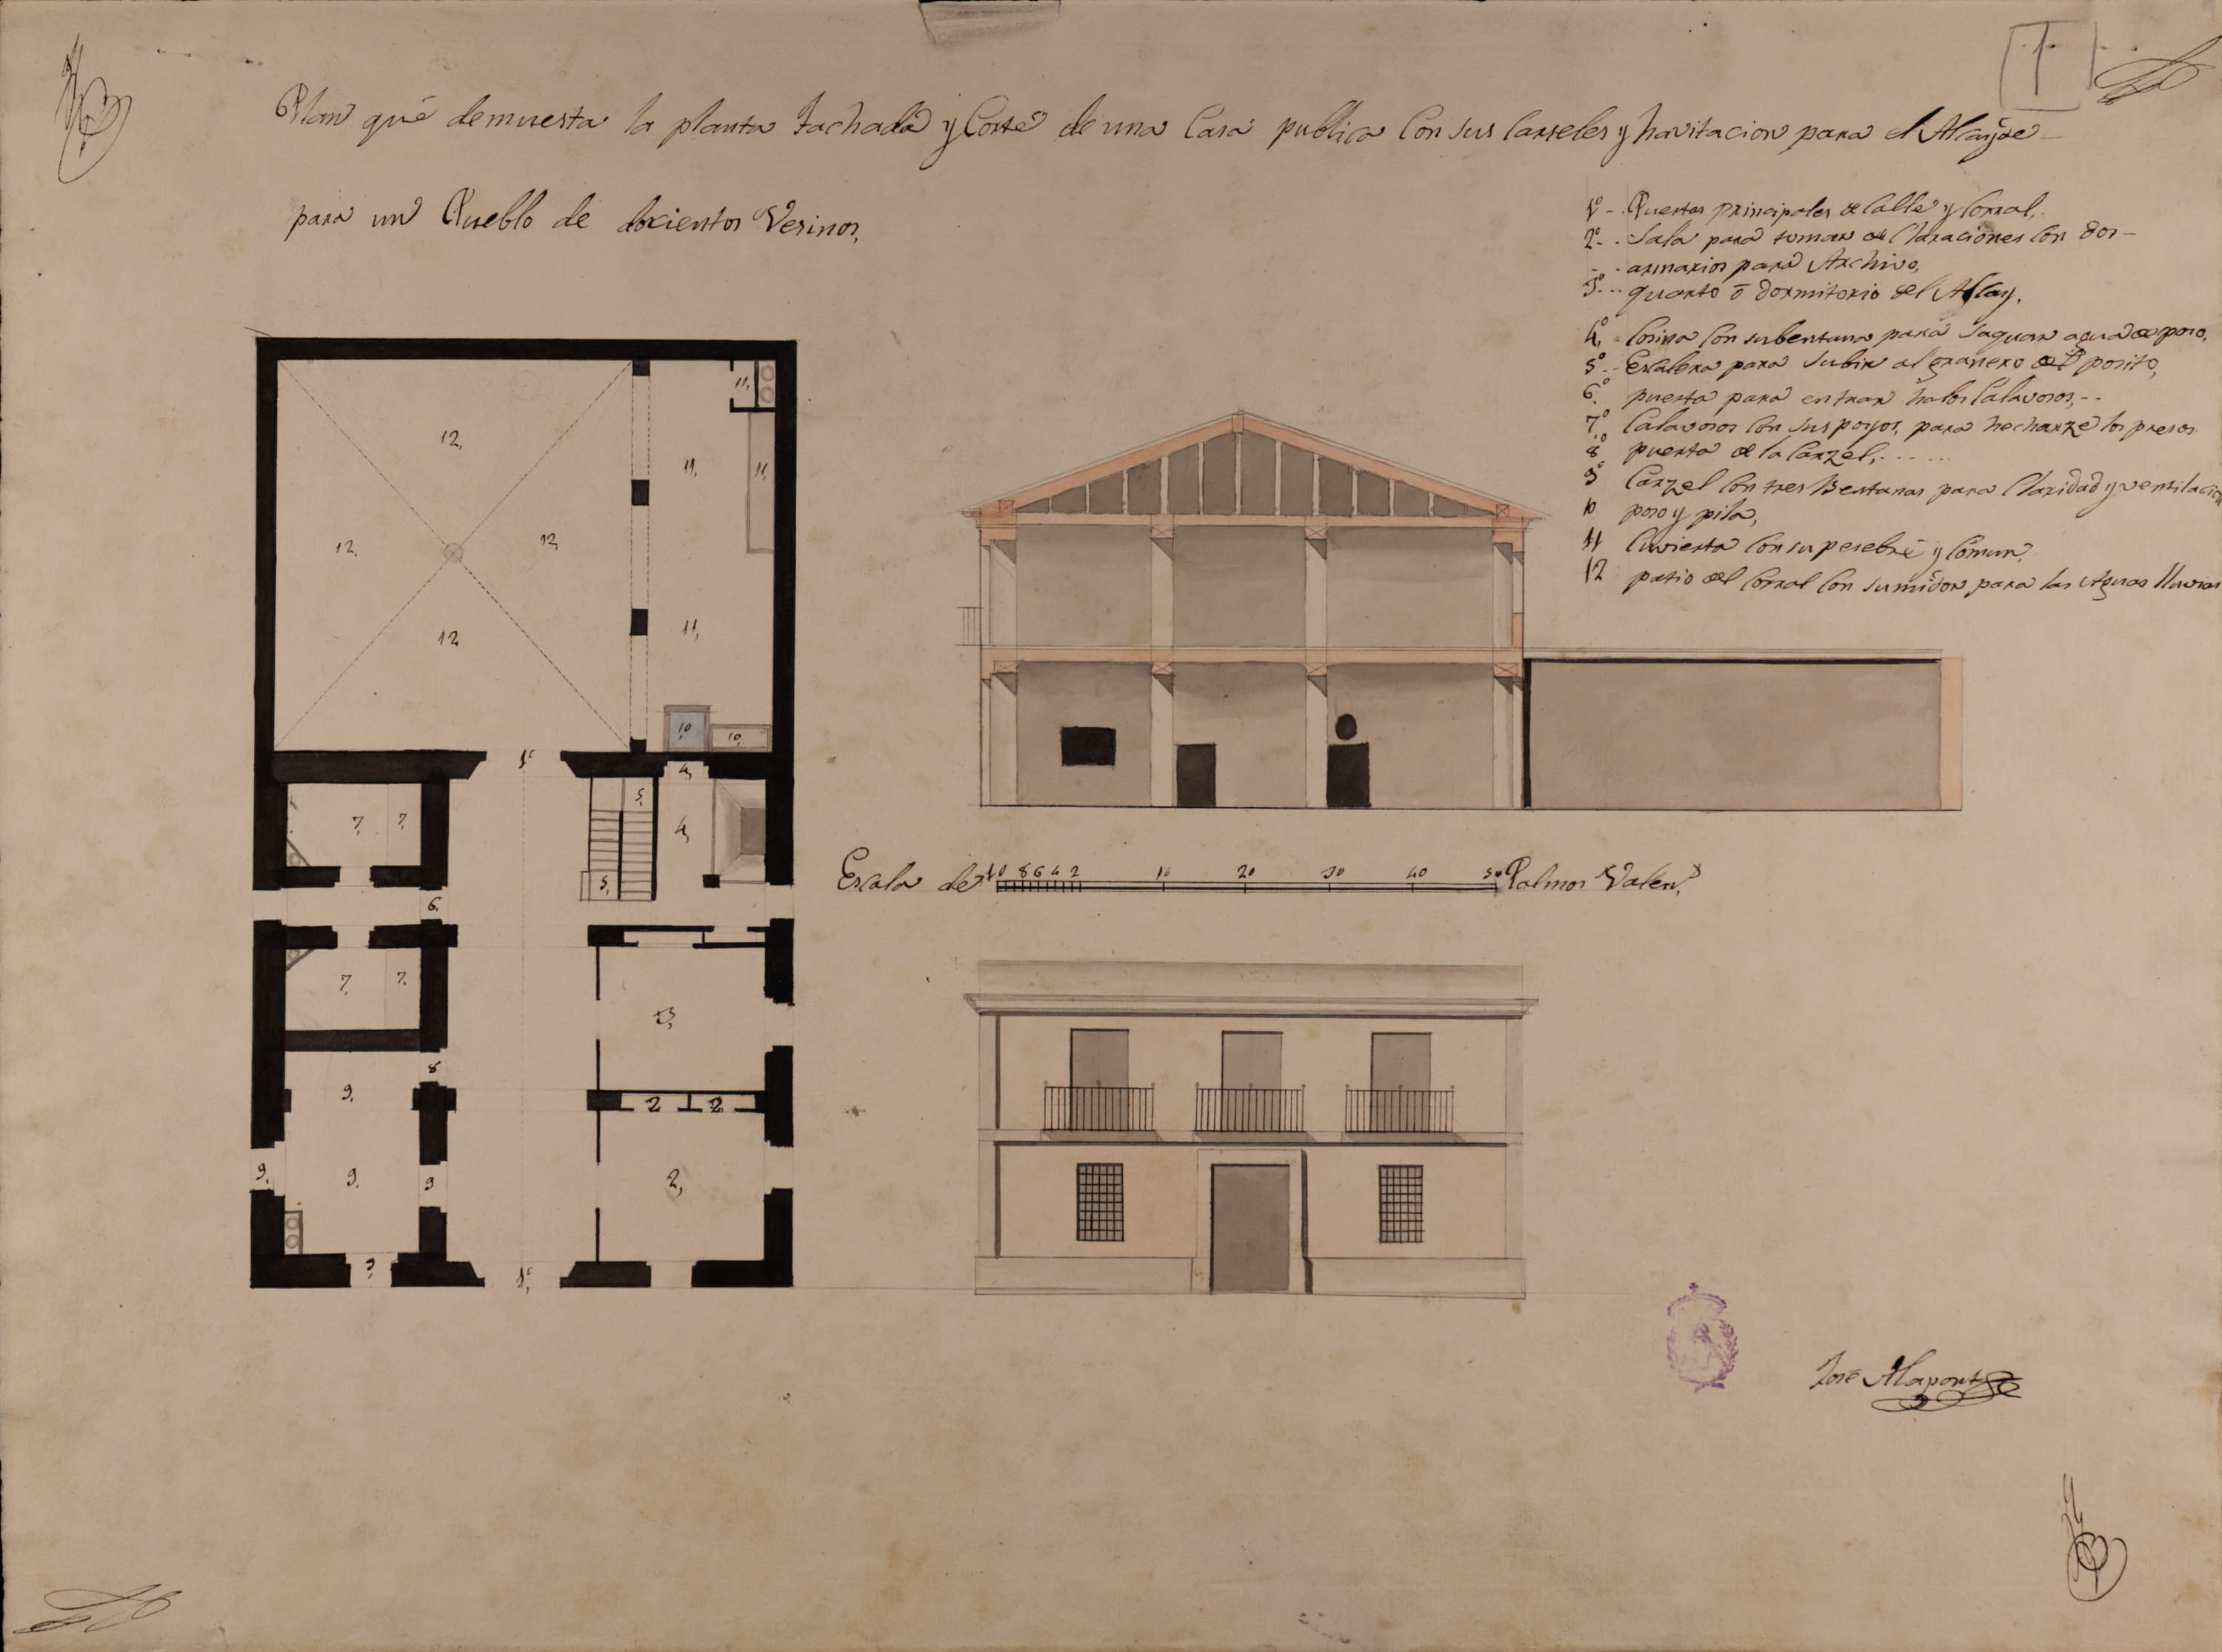 Plan qué demuestra la planta Fachada y Corte de una Casa publica Con sus Carseles y havitacion para el Alcayde
para un Pueblo de docientos Vesinos,
1º Puertas principales de Calle y Corral,
2º Sala para tomar declaraciones Con dos
armarios para Archivo,
3º quarto ô dormitorio del Alcay,
4º Cosina Con subentana para saquar agua de poso,
5º Escalera para subir al granero del posito,
6º puerta para entrar halos Calavosos,
7º Calavosos Con sus poyos, para hecharze los presos
8º puerta de la Carzel,
9º Carzel Con tres Bentanas para Claridad y ventilacion
10 poso y pila,
11 Cuvierta Con su pesebre y Comun,
12 patio del Corral Con sumidor para las Aguas lluvias
11,
12,
11,
11,
12,
12,
12
11,
10,
10,
1º
4,
5,
7,
7,
4,
5,
6,
7,
7,
3,
8
9,
2
2,
9,
9,
9
2,
9,
1º,
Escala de 10 8 6 4 2 10 20 30 40 50 Palmos Valens
José Alapont